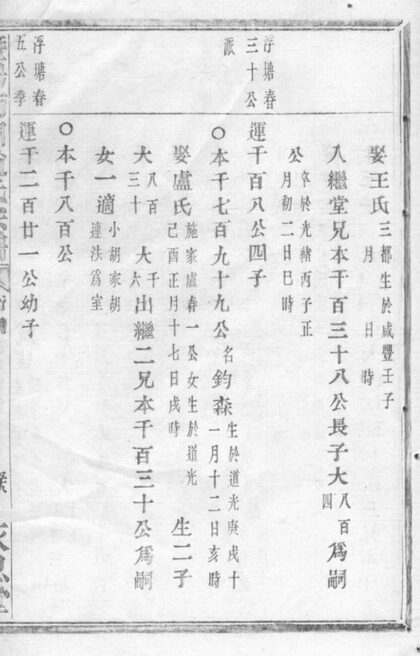 娶王氏三都生於咸豐壬子
月日時
入繼堂兄本千百三十八公長子大八百四為嗣
公卒於光緒丙子正
月初二日巳時
浮塘春
三十公
派
運千百八公四子
○本千七百九十九公名鈞森生於道光庚戌十
一月十二日亥時
娶盧氏施家盧春一公女生於道光
己酉正月十七日戌時
生二子
大八百三十
大千六出繼二兄本千百三十公為嗣
女一適小胡家胡
達法為室
○本千八百公
浮塘春
五公季
運千二百廿一公幼子